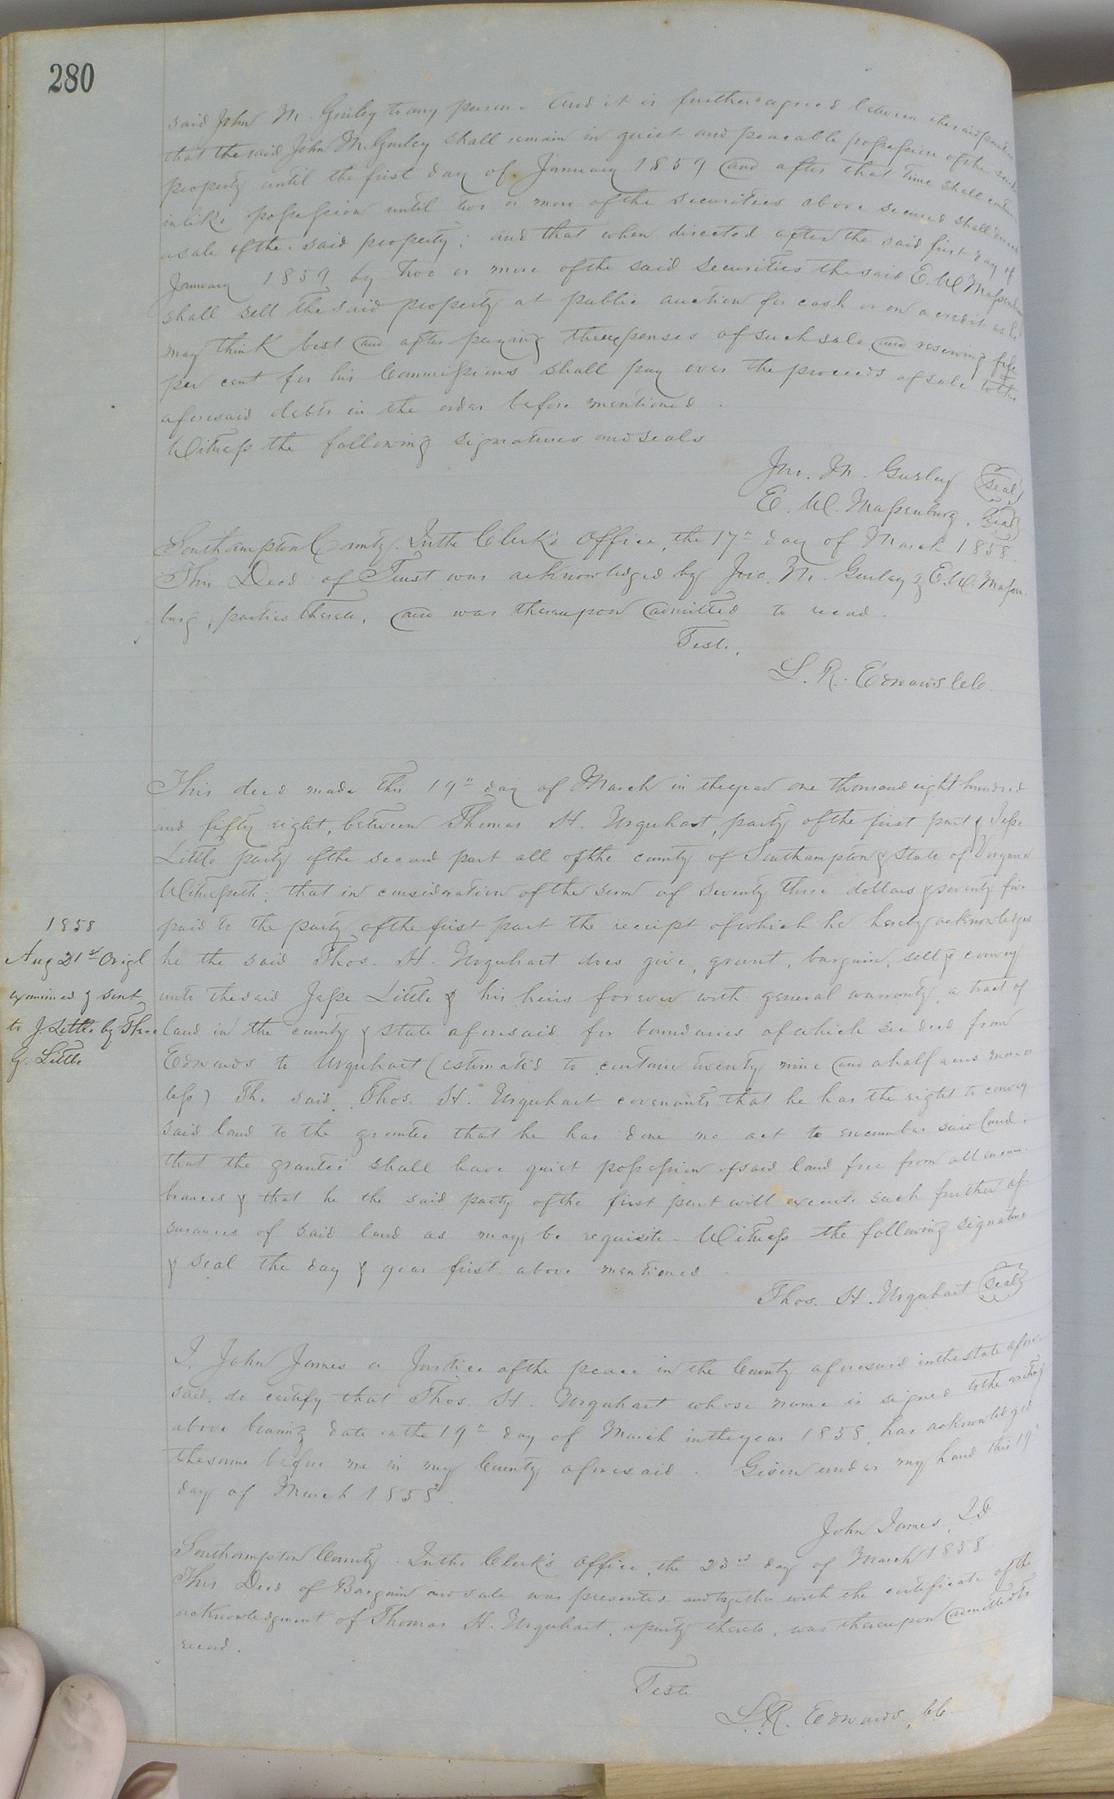 280
said John M. Gurley to any person. And it is further agreed between the said parties
that the said John M. Gurley shall remain in quiet and peaceable possession of the said
property until the first day of January 1859 and after that time shall
in like possession until two or more of the securities above secured shall
a sale of the said property; and that when directed after the said first day of
January 1859 by two or more of the said securities the said E. W. Massenburg
shall sell the said property at public auction for cash or on a credit as he
may think best and after paying the expenses of such sale and reserving five
per cent for his Commissions shall pay over the proceeds of sale to the
aforesaid debts in the order before mentioned.
Witness the following signatures and seals
Jno. M. Gurley (Seal)
E. W. Massenburg. (Seal)
Southampton County. In the Clerk's Office, the 17th day of March 1858.
This Deed of Trust was acknowledged by Jno. M. Gurley & E. W. Massen-
burg, parties thereto, and was thereupon admitted to record.
Teste,
L. R. Edwards CC.
This deed made this 19th day of March in the year one thousand eight hundred
and fifty eight, between Thomas H. Urquhart, party of the first part & Jesse
Little party of the second part all of the county of Southampton & State of Virginia
Witnesseth; that in consideration of the sum of seventy three dollars & seventy five
paid to the party of the first part the receipt of which he hereby acknowledges
he the said Thos. H. Urquhart does give, grant, bargain, sell & convey
unto the said Jesse Little & his heirs forever with general warranty a tract of
land in the county & state aforesaid for boundaries of which see deed from
Edwards to Urquhart (estimated to contain twenty nine and a half acres more or
less) The said Thos. H. Urquhart covenants that he has the right to convey
said land to the grantee that he has done no act to encumber said land.
that the grantee shall have quiet possession of said land free from all incum-
brances & that he the said party of the first part will execute such further as-
surances of said land as may be requisite - Witness the following signature
& seal the day & year first above mentioned
Thos. H. Urquhart (Seal)
1858
Aug 21st Origl
examined & sent
to J Little by Thos
G. Little
I, John James a Justice of the peace in the County aforesaid in the state afore-
said, do certify that Thos. H. Urquhart whose name is signed to the writing
above bearing date on the 19th day of March in the year 1858, has acknowledged
the same before me in my County aforesaid. Given under my hand this 19th
day of March 1858.
John James, J.P.
Southampton County. In the Clerk's Office, the 23rd day of March 1858.
This Deed of Bargain and sale was presented and together with the certificate of the
acknowledgment of Thomas H. Urquhart, a party thereto, was thereupon admitted to
record.
Teste
L. R. Edwards, CC.